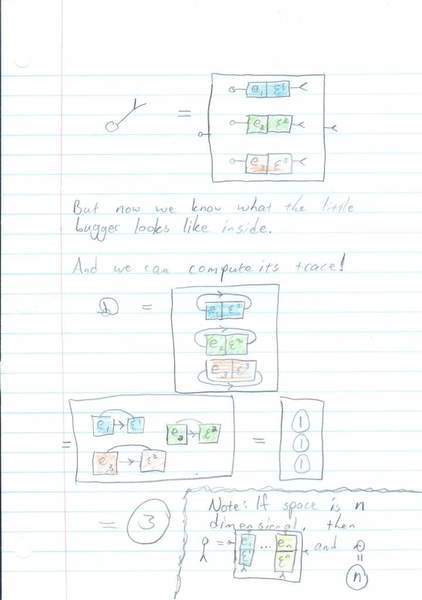 =
e₁ ε¹
e₂ ε²
e₃ ε³
But now we know what the little
bugger looks like inside.
And we can compute its trace!
=
e₁ ε¹
e₂ ε²
e₃ ε³
= e₁ → ε¹ e₂ → ε² = 1
1
e₃ → ε³ 1
= 3
Note: If space is n
dimensional, then
= e₁ ... eₙ and
ε¹ εⁿ =
n